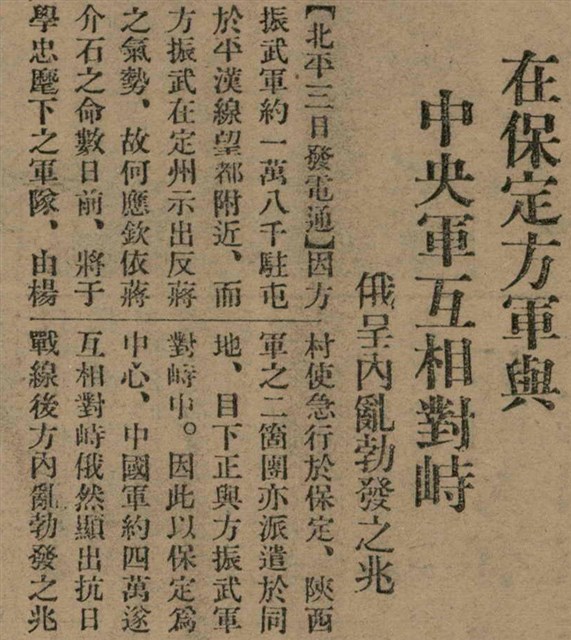 在保定方軍與
中央軍互相對峙
俄呈內亂勃發之兆
【北平三日發電通】因方
振武軍約一萬八千駐屯
於平漢線望都附近、而
方振武在定州示出反蔣
之氣勢、故何應欽依蔣
介石之命數日前、將于
學忠麾下之軍隊、由楊
村使急行於保定、陝西
軍之二箇團亦派遣於同
地、目下正與方振武軍
對峙中。因此以保定爲
中心、中國軍約四萬遂
互相對峙俄然顯出抗日
戰線後方內亂勃發之兆